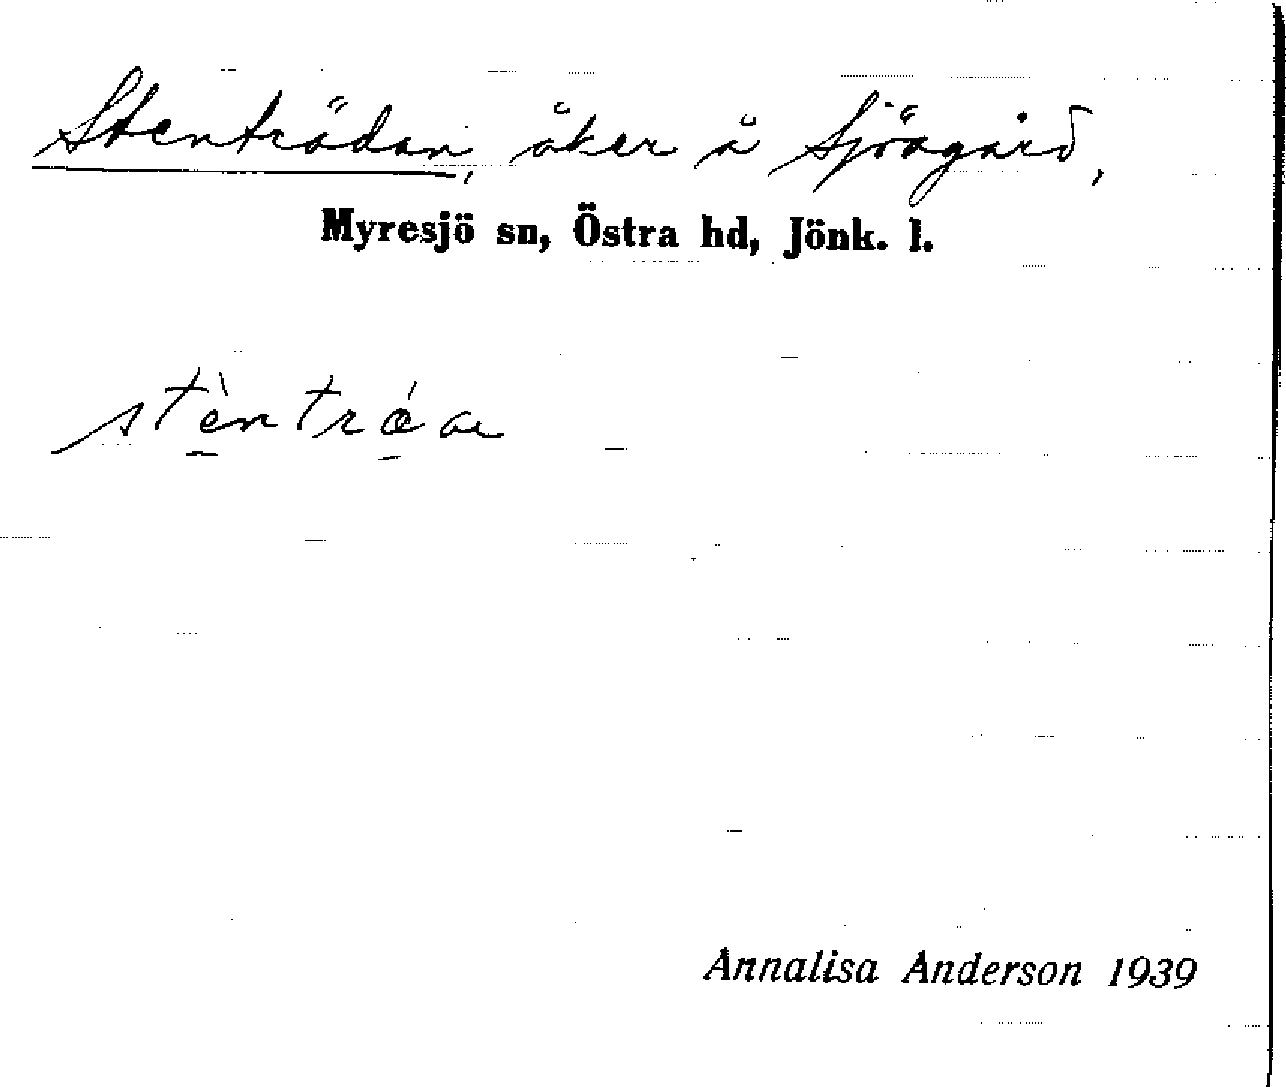 Stenträdan, åker å Sjöagård,
Myresjö sn, Östra hd, Jönk. l.
stèntrǽa
Annalisa Anderson 1939